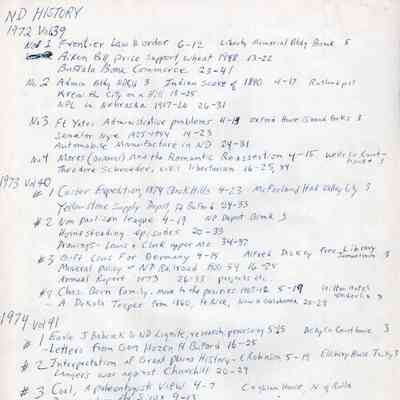 ND HISTORY
1972 Vol 39
No# 1 Frontier Law & order 6-12 Liberty Memorial Bldg Bismk 5
Aiken Bill price support, wheat 1948 13-22
Buffalo Bone Commerce 23-41
No. 2 Admin Bldg NDSU 3 Indian Scare of 1890 4-17
Krem the City on a Hill 18-25
NPL in Nebraska 1917-20 26-31
No 3 Ft Yates Administrative problems 4-13 Oxford House Grand Forks 3
Senator Nye 1925-1944 14-23
Automobile Manufacture in ND 24-31
No 4 Mores and the Romantic Reassertion 4-15 Wells Co Court-house 3
Theodore Schroeder, civil libertarian 16-25, 34
1973 Vol 40
# 1 Custer Expedition, 1874 Black Hills 4-23 McFarland Hall Valley City 3
Yellowstone Supply Depot, Ft Buford 24-33
# 2 Non partisan league 4-19 NP Depot Bismk 3
Homesteading episodes 20-33
Drawings - Lewis & Clark upper Mo. 34-37
# 3 Gift Cows For Germany 4-15 Alfred Dickey Free Library Jamestown 3
Mineral policy - NP Railroad 16-25
Annual Report 1973 26-33 projects etc.
#4 Chas. Born Family, move to the prairies 5-19 Hotel Enderlin 3
- A Dakota Trooper from 1860, 20-29
1974 Vol 41
# 1 Earle J Babcock & ND Lignite, research, processing 5-15 Courthouse 3
- Letters from Gen Hazen Ft Buford 16-25
# 2 Interpretation of Great plains History - E Robinson 5-19 3
Langers war against Churchill 20-29
# 3 Coal, A paleontogist View 4-7 House N of Rolla
9-13